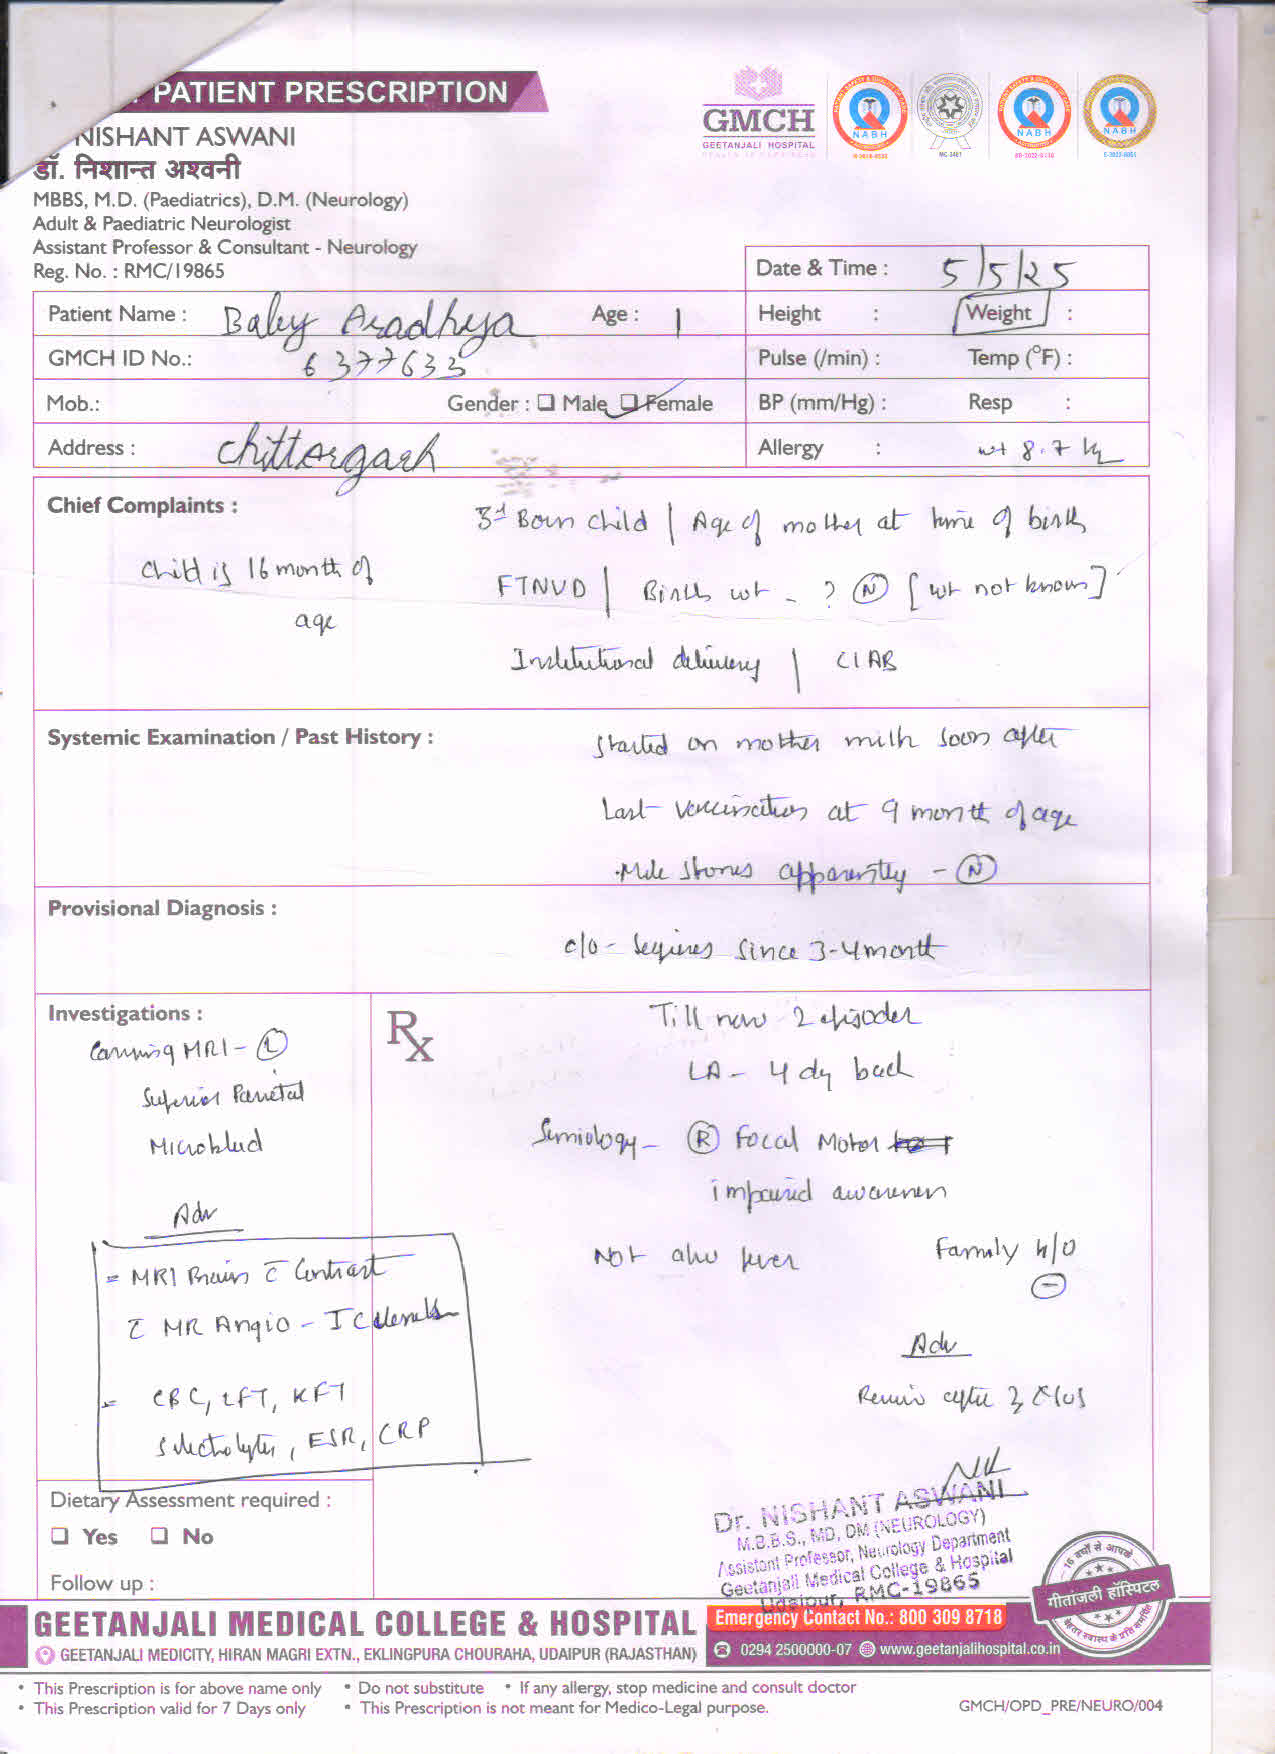 PATIENT PRESCRIPTION
NISHANT ASWANI
डॉ. निशान्त अश्वनी
MBBS, M.D. (Paediatrics), D.M. (Neurology)
Adult & Paediatric Neurologist
Assistant Professor & Consultant - Neurology
Reg. No. : RMC/19865
GMCH
GEETANJALI HOSPITAL
NABH
MC-3461
NABH
NABH
Date & Time : 5/5/25
Patient Name : Baby Aradhya Age : 1
Height : Weight :
GMCH ID No.: 6377633
Pulse (/min) : Temp (°F) :
Mob.: Gender : Male Female
BP (mm/Hg) : Resp :
Address : Chittorgarh
Allergy : wt 8.7 kg
Chief Complaints :
3rd Born child | Age of mother at time of birth
Child is 16 month of age
FTNVD | Birth wt - ? (N) [wt not known]
Institutional delivery | CIAB
Systemic Examination / Past History :
Started on mother milk soon after
Last vaccination at 9 month of age
Mile stones apparently - (N)
Provisional Diagnosis :
c/o - Seizures since 3-4 month
Investigations :
MRI - (L)
Superior Parietal
Microbleed
Adv
= MRI Brain c̄ Contrast
c̄ MR Angio - IC Vessels
= CBC, LFT, KFT
S electrolytes, ESR, CRP
Rx
Till now 2 episodes
LA - 4 dy back
Semiology - (R) Focal Motor
impaired awareness
Not a/w fever
Family H/O
(-)
Adv
Review after
Dr. NISHANT ASWANI
M.B.B.S., MD, DM (NEUROLOGY)
Assistant Professor, Neurology Department
Geetanjali Medical College & Hospital
Udaipur, RMC-19865
Dietary Assessment required :
Yes No
Follow up :
गीतांजली हॉस्पिटल
GEETANJALI MEDICAL COLLEGE & HOSPITAL
GEETANJALI MEDICITY, HIRAN MAGRI EXTN., EKLINGPURA CHOURAHA, UDAIPUR (RAJASTHAN)
Emergency Contact No.: 800 309 8718
0294 2500000-07 www.geetanjalihospital.co.in
• This Prescription is for above name only • Do not substitute • If any allergy, stop medicine and consult doctor
• This Prescription valid for 7 Days only • This Prescription is not meant for Medico-Legal purpose.
GMCH/OPD_PRE/NEURO/004